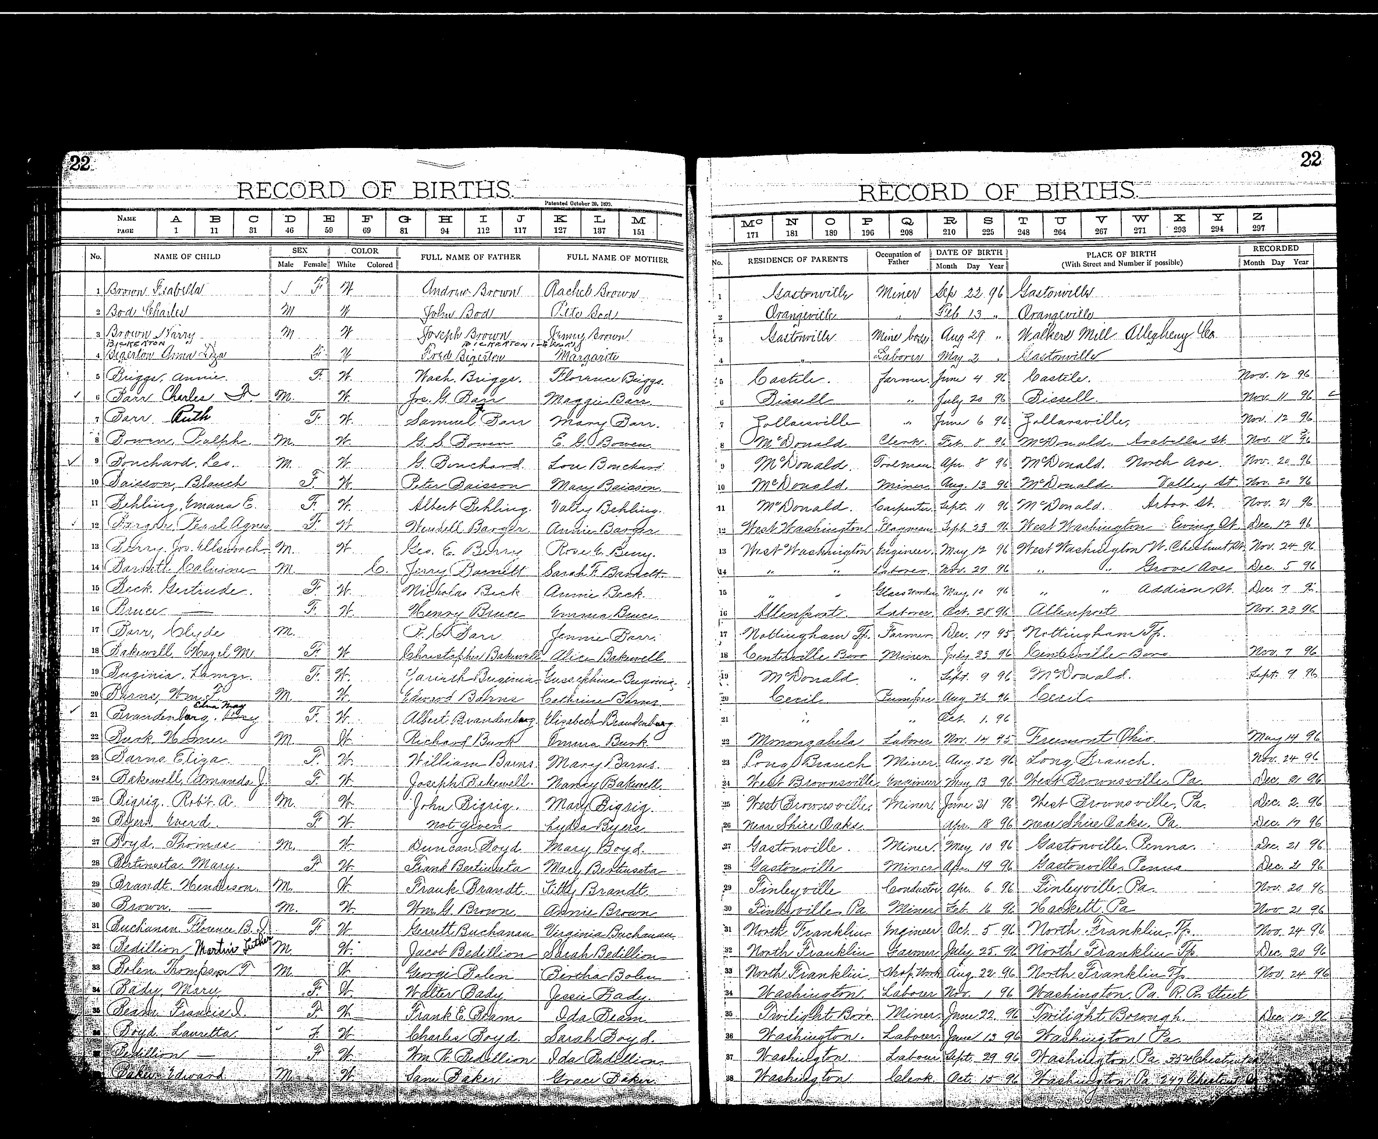 22
RECORD OF BIRTHS.
Patented October 26, 1875.
NAME A B C D E F G H I J K L M
PAGE 1 11 31 46 59 69 81 94 112 117 127 137 151
No. NAME OF CHILD SEX COLOR FULL NAME OF FATHER FULL NAME OF MOTHER
Male Female White Colored
1 Brown Isabella F W. Andrew Brown Rachel Brown
2 Bod Charles M W John Bod
3 Brown Harry M W. Joseph Brown Jenny Brown
BICKERTON BICKERTON
4 Bigerton Anna F W Bigerton Margarite
5 Briggs, Annie. F. W. Wash. Briggs. Florence Briggs.
6 Barr Charles M. W. Jos. G. Barr Maggie Barr
7 Barr Ruth F W. Samuel F Barr Mary Barr.
8 Bowen, Ralph. M. W. G. S. Bowen E. G. Bowen.
9 Bouchard, Leo. M W. G. Bouchard Lou Bouchard
10 Baisson, Blauch F. W. Peter Baisson Mary Baisson.
11 Behling, Emana E. F. W. Albert Behling Valty Behling.
12 Barger, Pearl Agnes F W. Wendell Barger Annie Barger
13 Berry, Jos. Ellsworth M. W. Geo. E. Berry Rose E. Berry.
14 Barnett, Calvin M. C. Jerry Barnett Sarah F. Barnett.
15 Beck, Gertrude. F. W. Nicholas Beck Annie Beck.
16 Bruce — F. W. Henry Bruce Emma Bruce.
17 Barr, Clyde M. Barr Jennie Barr.
18 Bakewell, Hazel M. F. W. Christopher Bakewell Alice Bakewell.
19 Buginia, F. W. Buginia Gussephine Buginia
20 Burns, Wm. F. M. W. Edward Burns Catherine Burns.
Edna May
21 Brandenburg. F. W. Albert Brandenburg. Elizabeth Brandenburg
22 Burk Homer M. W. Richard Burk Emma Burk.
23 Barns Eliza. F. W. William Barns Mary Barns.
24 Bakewell, Amanda J. F W. Joseph Bakewell. Nancy Bakewell.
25 Bigrig. Robt. A. M. W. John Bigrig. Mary Bigrig.
26 Byers F W. Not Given Lydia Byers
27 Boyd, Thomas M. W. Duncan Boyd Mary Boyd.
28 Bertinusta Mary. F W. Frank Bertinusta Mary Bertinusta
29 Brandt. Henderson. M. W. Frank Brandt. Tilly Brandt.
30 Brown. — M. W. Wm G. Brown. Annie Brown
31 Buchanan, Florence B. F W. Garrett Buchanan Virginia Buchanan
32 Bedillion, Martin Luther M W. Jacob Bedillion Sarah Bedillion
33 Bolen, Thompson T M W. George Bolen Bertha Bolen
34 Bady, Mary F W. Walter Bady Jessie Bady.
35 Beam Francis I. F W. Frank E. Beam Ida Beam.
Boyd Lauretta. F. W. Charles Boyd. Sarah Boyd.
Bedillion — F W. Wm R. Bedillion Ida Bedillion
Baker Edward M. W. Sam Baker Grace Baker.
22
RECORD OF BIRTHS.
Mc N O P Q R S T U V W X Y Z
171 181 189 196 208 210 225 248 264 267 271 293 294 297
No. RESIDENCE OF PARENTS Occupation of Father DATE OF BIRTH PLACE OF BIRTH RECORDED
Month Day Year (With Street and Number if possible) Month Day Year
1 Gastonville Miner Sep 22 96 Gastonville
2 Orangeville " Feb 13 " Orangeville
3 Gastonville Mine boss Aug 29 " Walkers Mill Allegheny Co
4 " Laborer May 2 " Gastonville
5 Castile. Farmer June 4 96 Castile. Nov. 12 96
6 Bissell " July 20 96 Bissell. Nov. 11 96
7 Zollarsville " June 6 96 Zollarsville, Nov. 12 96
8 McDonald Clerk. Feb. 8 96 McDonald. Arabella St. Nov. 18 96
9 McDonald Toolman Apr. 8 96 McDonald. North Ave. Nov. 20 96
10 McDonald Miner Aug. 13 96 McDonald. Valley St. Nov. 20 96
11 McDonald. Carpenter Sept. 11 96 McDonald. Arbor St. Nov. 21 96
12 West Washington Drayman Sept. 23 96 West Washington Ewing St. Dec. 12 96
13 West Washington Engineer May 12 96 West Washington W. Chestnut St. Nov. 24 96
14 " " Laborer Nov. 27 96 " " Grove Ave Dec. 5 96
15 " " Glassworker May 10 96 " " Addison St. Dec 7
16 Allenport Laborer Oct. 28 96 Allenport Nov. 23 96
17 Nottingham Tp. Farmer Dec. 17 95 Nottingham Tp.
18 Centerville Boro Miner July 23 96 Centerville Boro Nov. 7 96
19 McDonald " Sept. 9 96 McDonald. Sept. 9 96
20 Cecil. Pumper Aug 26 96 Cecil.
21 " " Oct. 1. 96
22 Monongahela Laborer Nov. 14 95 Fremont Ohio. May 14 96
23 Long Branch Miner Aug. 22 96 Long Branch. Nov. 24 96
24 West Brownsville Engineer May 13 96 West Brownsville Pa Dec. 21 96
25 West Brownsville Miner June 21 96 West Brownsville, Pa. Dec. 2. 96
26 near Shire Oaks. Apr. 18 96 near Shire Oaks, Pa. Dec. 17 96
27 Gastonville Miner May 10 96 Gastonville Penna. Dec. 21 96
28 Gastonville Miner Apr. 19 96 Gastonville Penna Dec. 21 96
29 Finleyville Conductor Apr. 6 96 Finleyville Pa. Nov. 20 96
30 Finleyville Pa Miner Feb. 16 96 Hackett, Pa Nov. 21 96
31 North Franklin Engineer Oct. 5 96 North Franklin Tp. Nov. 24 96
32 North Franklin Farmer July 25 96 North Franklin Tp Dec. 20 96
33 North Franklin Shop Work Aug. 22 96 North Franklin Tp. Nov. 24 96
34 Washington. Laborer Nov. 1 96 Washington, Pa. R. R. Street
35 Twilight Boro. Miner June 22 96 Twilight Borough. Dec. 12 96
36 Washington. Laborer June 13 96 Washington Pa.
37 Washington. Laborer Sept. 29 96 Washington Pa. 354 Chestnut
38 Washington Clerk. Oct. 15 96 Washington Pa 247 Chestnut